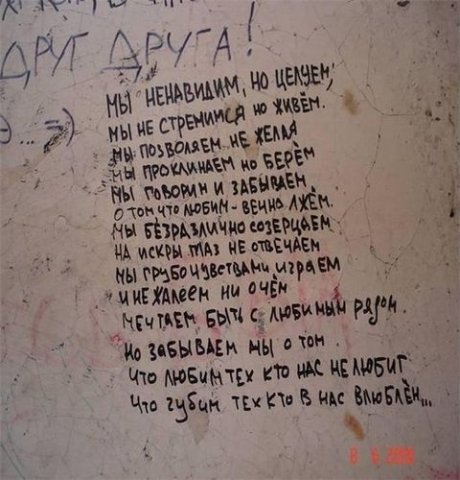 ДРУГ ДРУГА!
МЫ НЕНАВИДИМ, НО ЦЕЛУЕМ,
МЫ НЕ СТРЕМИМСЯ НО ЖИВЁМ.
МЫ ПОЗВОЛЯЕМ НЕ ЖЕЛАЯ
МЫ ПРОКЛИНАЕМ НО БЕРЁМ
МЫ ГОВОРИМ И ЗАБЫВАЕМ
О ТОМ ЧТО ЛЮБИМ - ВЕЧНО ЛЖЁМ.
МЫ БЕЗРАЗЛИЧНО СОЗЕРЦАЕМ
НА ИСКРЫ ГЛАЗ НЕ ОТВЕЧАЕМ
МЫ ГРУБО ЧУВСТВАМИ ИГРАЕМ
И НЕ ЖАЛЕЕМ НИ О ЧЁМ
МЕЧТАЕМ БЫТЬ С ЛЮБИМЫМ РЯДОМ
НО ЗАБЫВАЕМ МЫ О ТОМ
ЧТО ЛЮБИМ ТЕХ КТО НАС НЕ ЛЮБИТ
ЧТО ГУБИМ ТЕХ КТО В НАС ВЛЮБЛЁН...